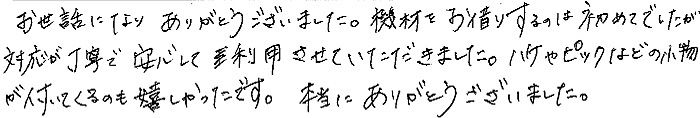 お世話になり ありがとうございました。機材をお借りするのは初めてでしたが
対応が丁寧で安心して利用させていただきました。ハケやピックなどの小物
が付いてくるのも嬉しかったです。本当にありがとうございました。